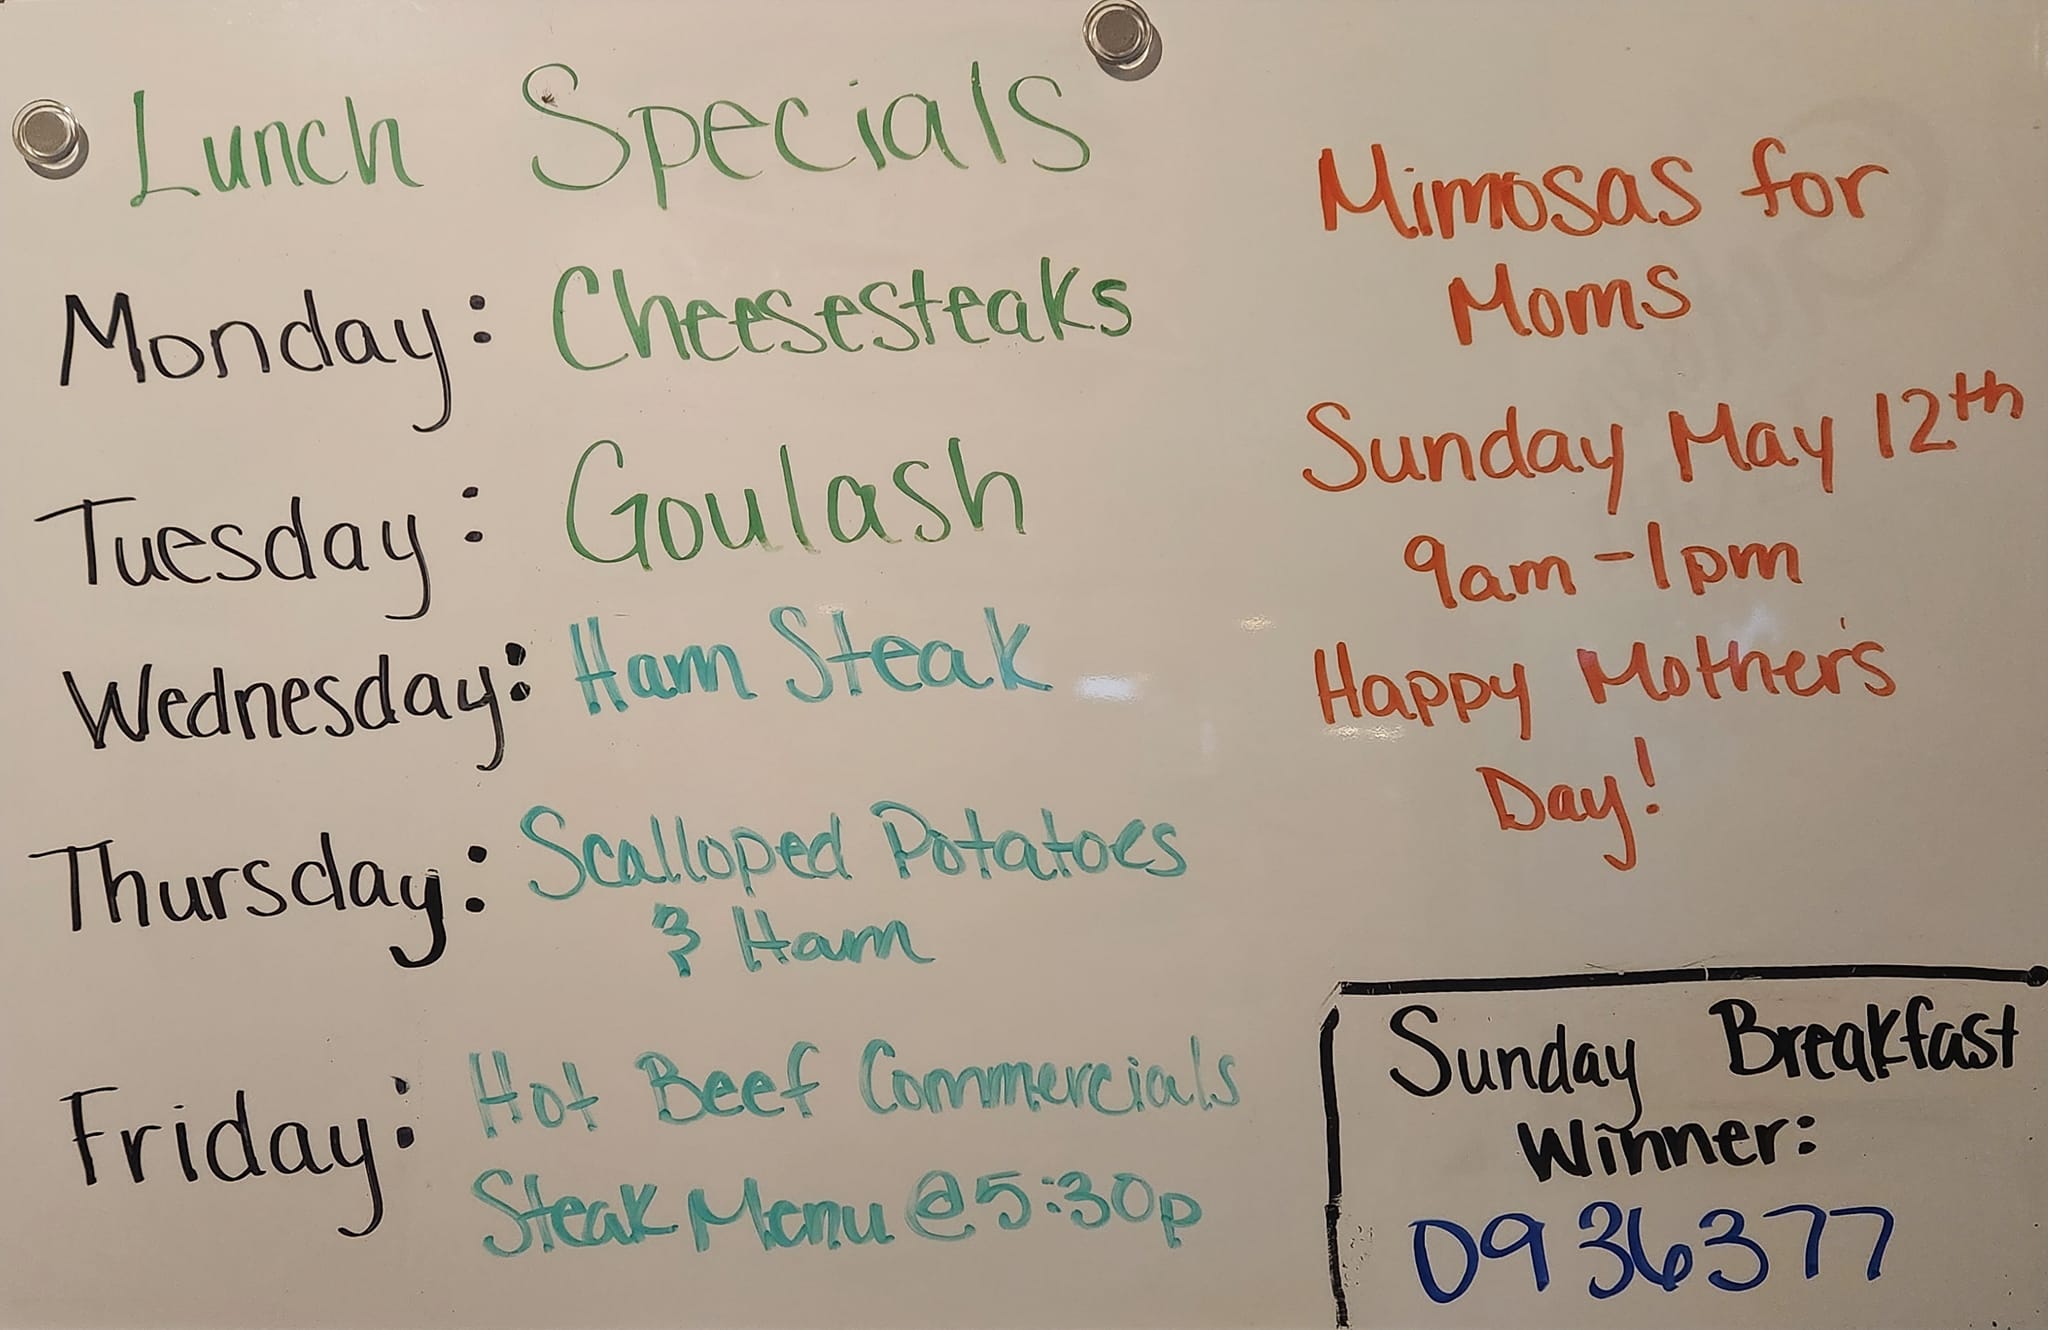 Lunch Specials
Monday: Cheesesteaks
Tuesday: Goulash
Wednesday: Ham Steak
Thursday: Scalloped Potatoes
& Ham
Friday: Hot Beef Commercials
Steak Menu @ 5:30p
Mimosas for
Moms
Sunday May 12th
9am - 1pm
Happy Mother's
Day!
Sunday Breakfast
Winner:
0936377